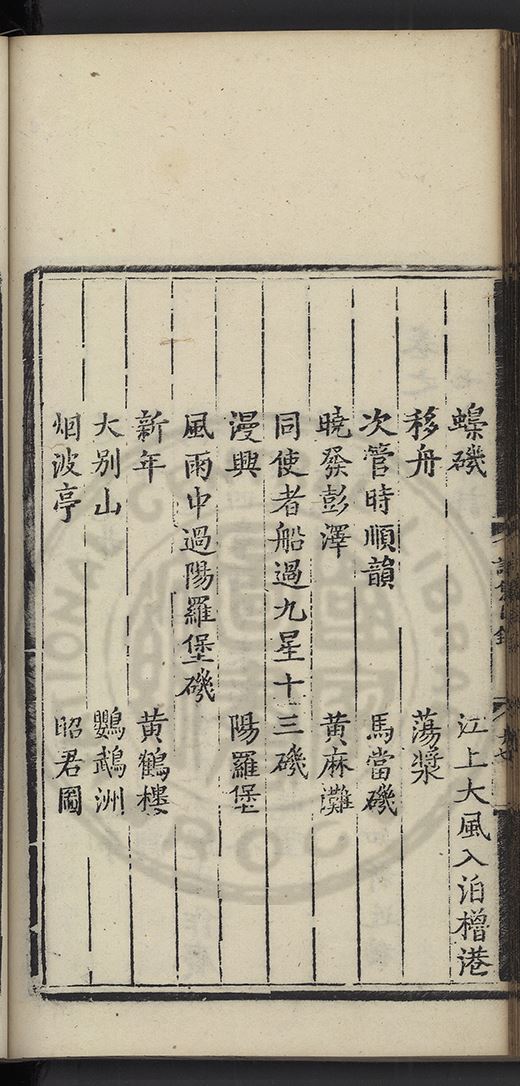 蟂磯　江上大風入泊櫓港
移舟　蕩漿
次管時順韻　馬當磯
曉發彭澤　黃麻灘
同使者船過九星十三磯
漫興　陽羅堡
風雨中過陽羅堡磯
新年　黃鶴樓
大别山　鸚鵡洲
烟波亭　昭君圖